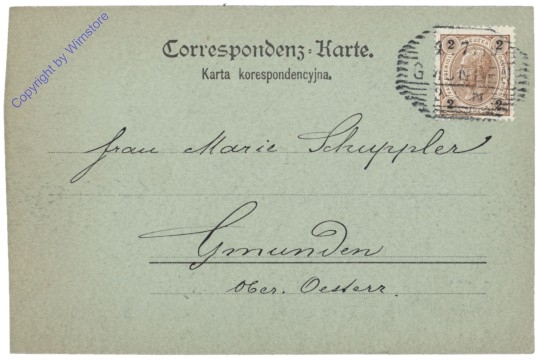 Correspondenz-Karte.
Karta korespondencyjna.
2 2
2 2
Frau Marie Schuppler
Gmunden
Ober. Oesterr.
Copyright by Wimstore